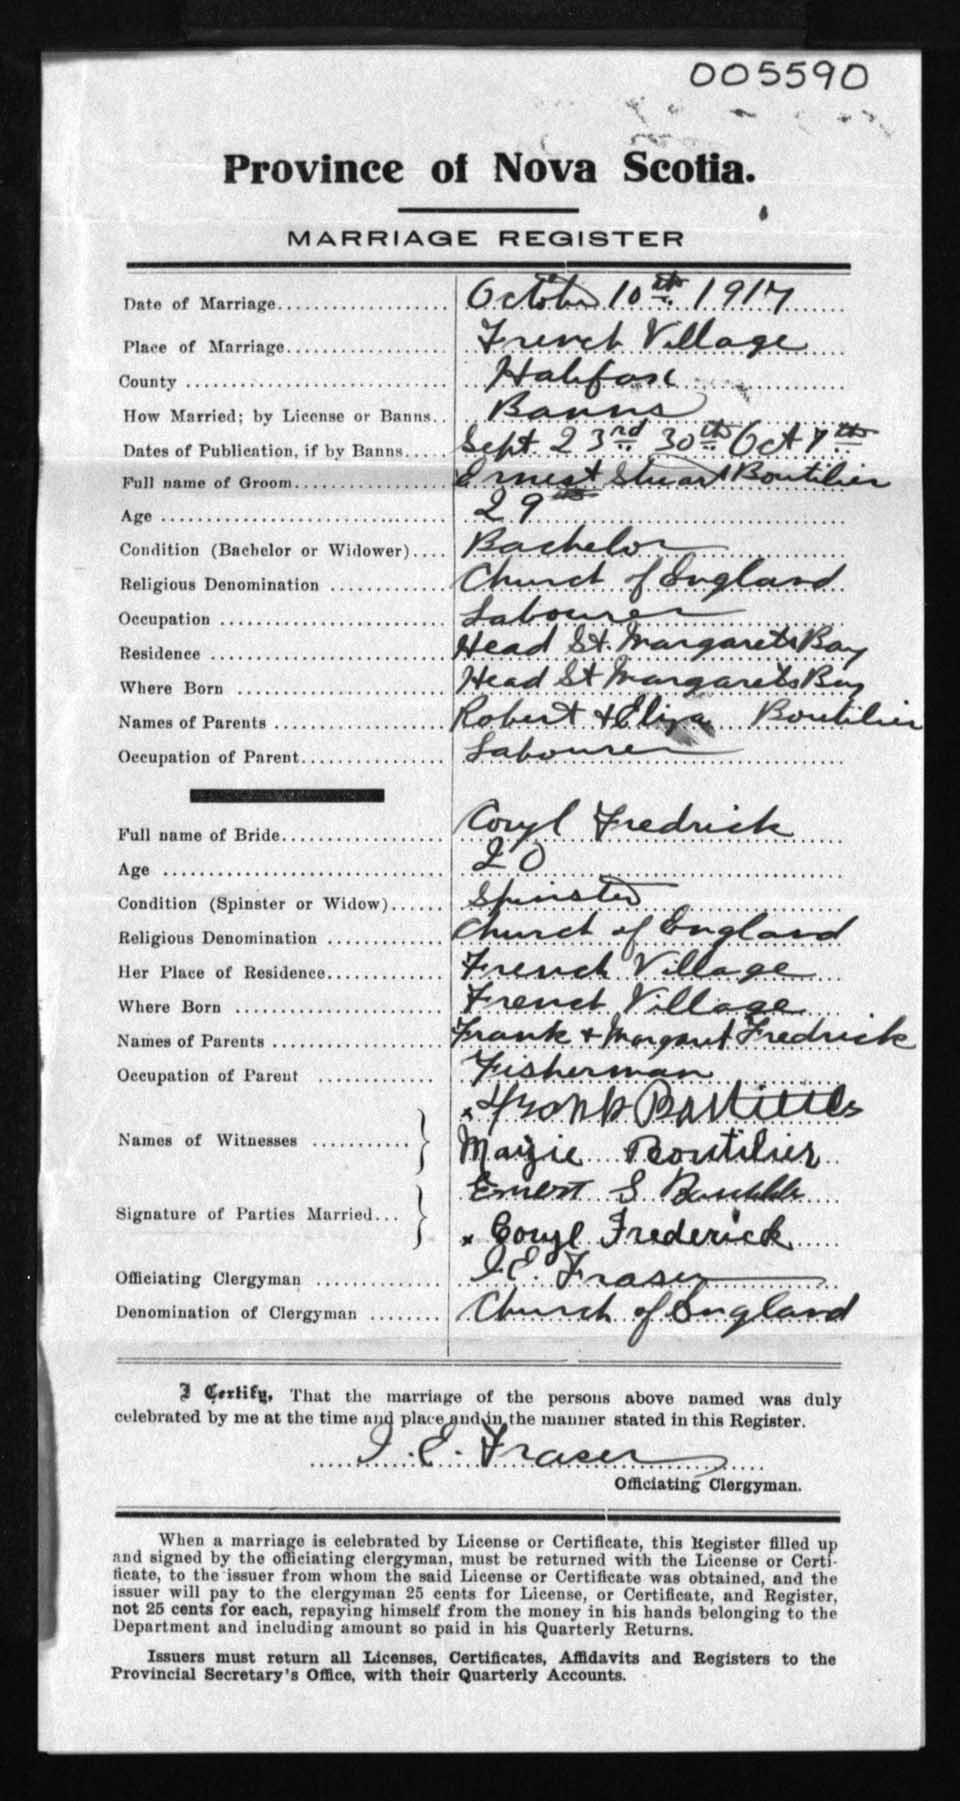 005590
Province of Nova Scotia.
MARRIAGE REGISTER
Date of Marriage October 10th 1917
Place of Marriage French Village
County Halifax
How Married; by License or Banns Banns
Dates of Publication, if by Banns Sept. 23rd 30th Oct 7th
Full name of Groom Ernest Stuart Boutilier
Age 29
Condition (Bachelor or Widower) Bachelor
Religious Denomination Church of England
Occupation Labourer
Residence Head St. Margarets Bay
Where Born Head St Margarets Bay
Names of Parents Robert & Eliza Boutilier
Occupation of Parent Labourer
Full name of Bride Coryl Fredrick
Age 20
Condition (Spinster or Widow) Spinster
Religious Denomination Church of England
Her Place of Residence French Village
Where Born French Village
Names of Parents Frank & Margaret Fredrick
Occupation of Parent Fisherman
x Frank
Names of Witnesses
Mayzie Boutilier
Ernest S
Signature of Parties Married
x Coryl Frederick
Officiating Clergyman I.E. Fraser
Denomination of Clergyman Church of England
I Certify, That the marriage of the persons above named was duly
celebrated by me at the time and place and in the manner stated in this Register.
I. E. Fraser
Officiating Clergyman.
When a marriage is celebrated by License or Certificate, this Register filled up
and signed by the officiating clergyman, must be returned with the License or Certi-
ficate, to the issuer from whom the said License or Certificate was obtained, and the
issuer will pay to the clergyman 25 cents for License, or Certificate, and Register,
not 25 cents for each, repaying himself from the money in his hands belonging to the
Department and including amount so paid in his Quarterly Returns.
Issuers must return all Licenses, Certificates, Affidavits and Registers to the
Provincial Secretary's Office, with their Quarterly Accounts.